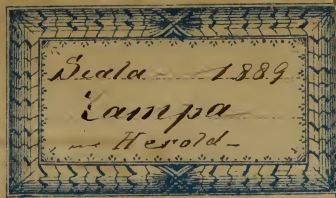 Scala 1889
Zampa
Herold